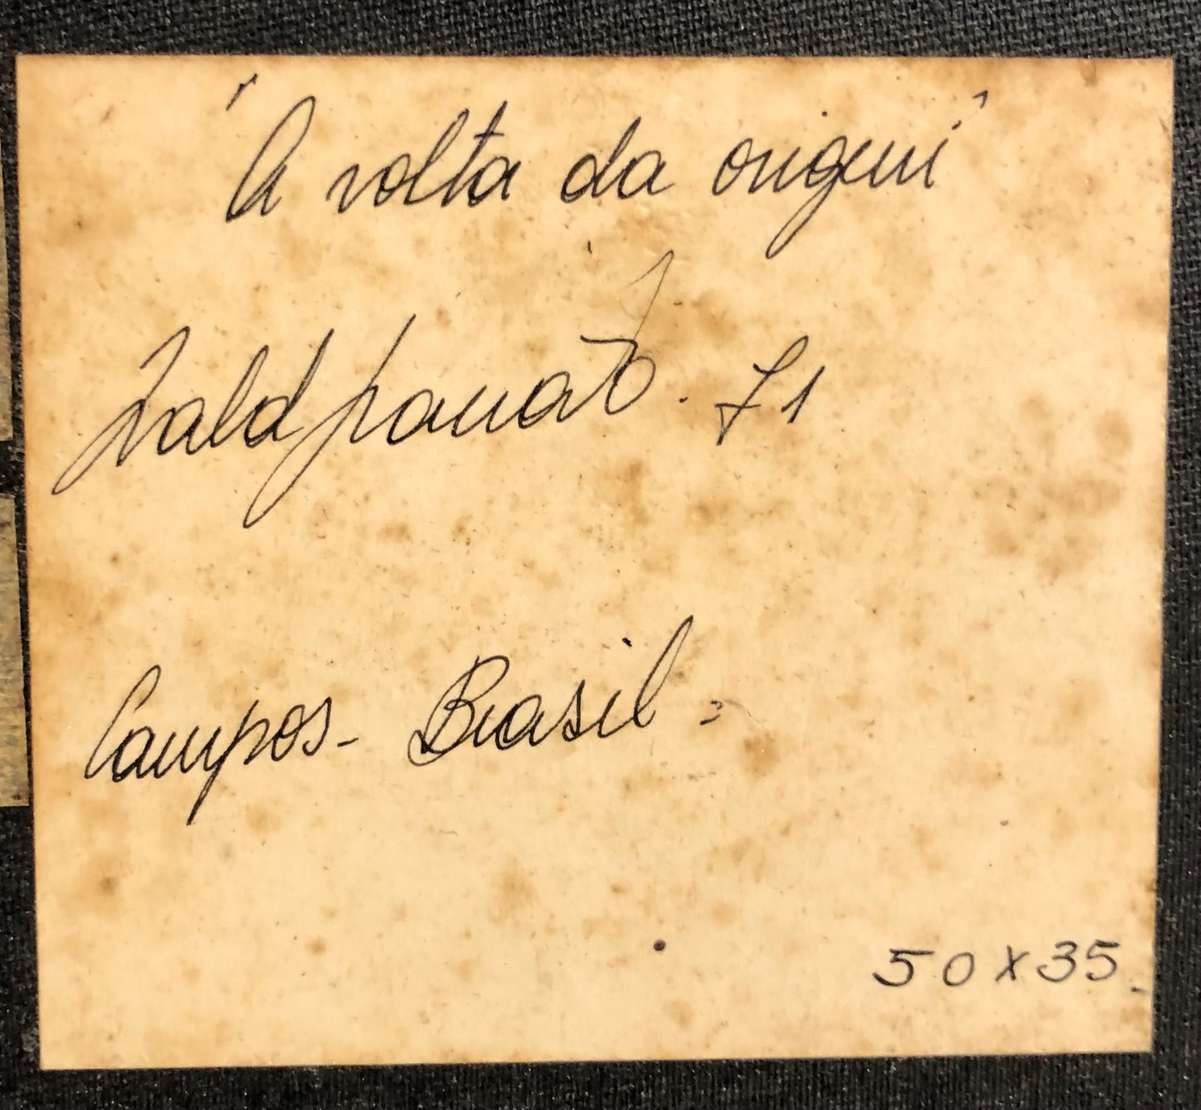 "A volta da origem"
71
Campos - Brasil -
50 x 35